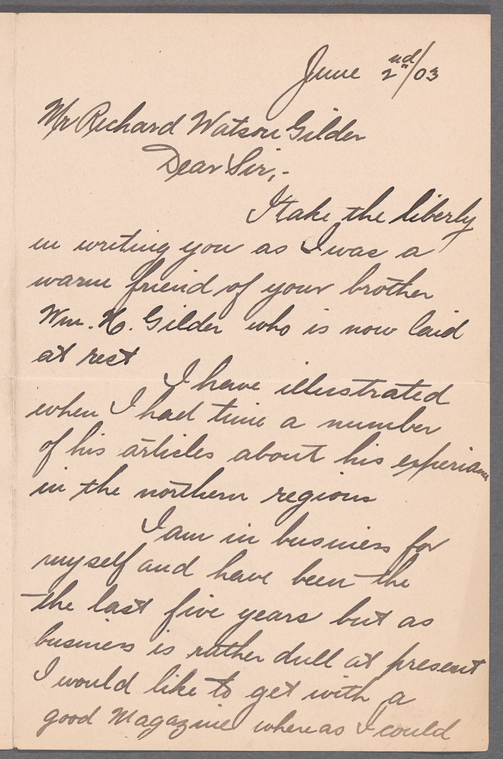 June 2nd/03
Mr Richard Watson Gilder
Dear Sir,-
I take the liberty
in writing you as I was a
warm friend of your brother
Wm. H. Gilder who is now laid
at rest
I have illustrated
when I had time a number
of his articles about his experiance
in the northern regions
I am in business for
myself and have been the
the last five years but as
business is rather dull at present
I would like to get with a
good Magazine whereas I could